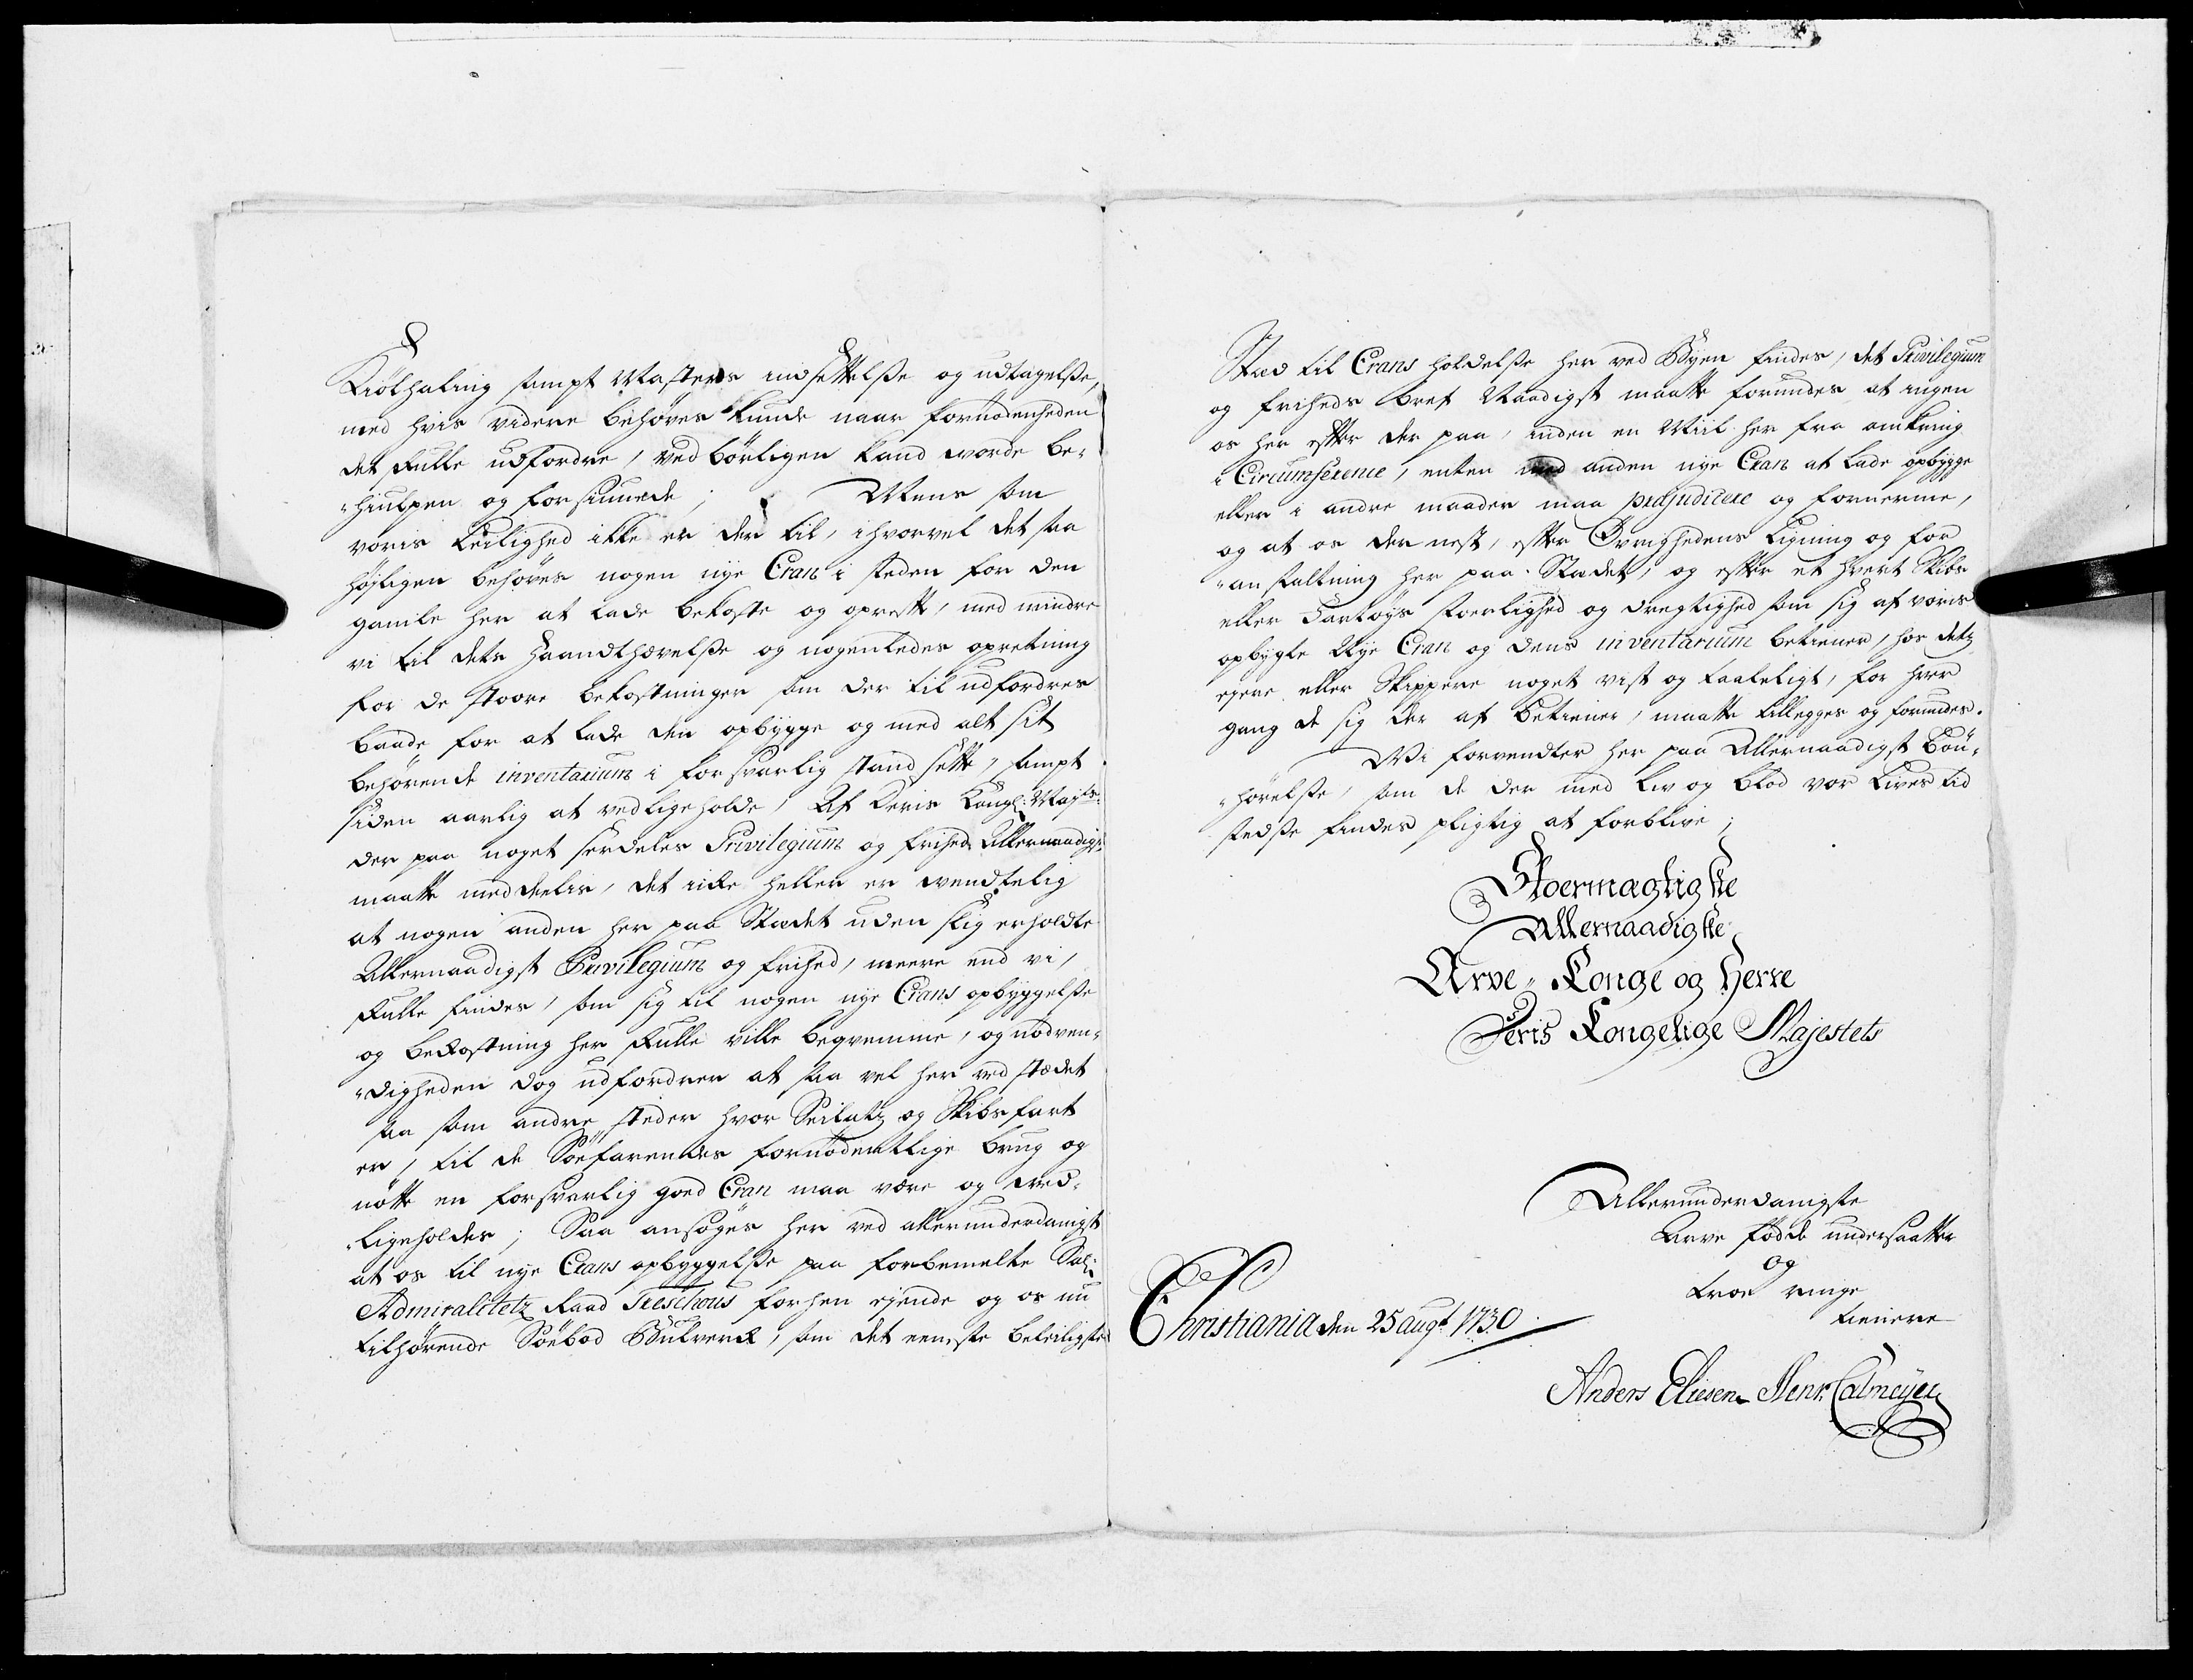 Kiølhaling sampt Masters indsettelse og udtagelse,
med hvis videre behøves kunde naar fornødenheden
det skulle udfordre, ved børligen kand worde be-
hiulpen og forsiunede; Mens som
voris Leilighed ikke er der til, ihvorvel det saa
høyligen behøves nogen nye Cran i steden for den
gamle her at lade bekoste og oprette, med mindre
vi til dets Haandthævelse og nogenledes opretning
for de stoore bekostninger som der til udfordres
baade for at lade den opbygge og med alt sit
behørende inventarium i forsvarlig stand sette, sampt
siden aarlig at vedligeholde, Af Deris Kongl: Mayts:
der paa noget serdeles Privilegium og frihed Allernaadigst
maatte meddeelis, det icke heller er wendtelig
at nogen anden her paa Stædet uden slig erholdte
Allernaadigst Privilegium og frihed, meere end vi,
skulle findes, som sig til nogen nye Crans opbyggelse
og bekostning her skulle ville beqvemme, og nødven-
digheden dog udfordrer at saa vel her ved stædet
saa som andre steder hvor Seilatz og Skibsfart
er, til de Søefarendes fornødentlige brug og
nøtte en forsvarlig goed Cran maa være og ved-
ligeholdes; Saa ansøges her ved allerunderdanigst
at os til nye Crans opbyggelse paa forbemelte Sal:
Admiralitetz Raad Treschous forhen ejende og os nu
tilhørende Søebod Bulverck, som det eeneste beleiligste
Stæd til Crans holdelse her ved Byen findes, det Privilegium
og friheds bref Naadigst maatte forundes at ingen
os her efter der paa, inden en Miil her fra omkring
i Circumference, enten med anden nye Cran at lade opbygge
eller i andre maader maa præjudicere og fornerme,
og at os der nest, efter Øvrighedens Ligning og for
anstaltning her paa Stædet, og efter et hvert Skibs
eller Fartøys storlighed og drægtighed som sig af voris
opbygte Nye Cran og dens inventarium betiener, hos detz
ejere eller Skippere noget vist og taaleligt, for hver
gang de sig der af betiener, maatte tillegges og forundes.
Vi forventer her paa Allernaadigst Bøn-
hørelse, som de der med Liv og blod vor Lives tid
stedse findes pligtig at forblive;
Stoermægtigste
Allernaadigste
Arve Konge og Herre
Deris Kongelige Majestets
Allerunderdanigste
Arve fødde undersaatter
og
troe ringe
tienere
Christiania den 25 augt 1730
Anders Eliesen Henr: Calmeyer